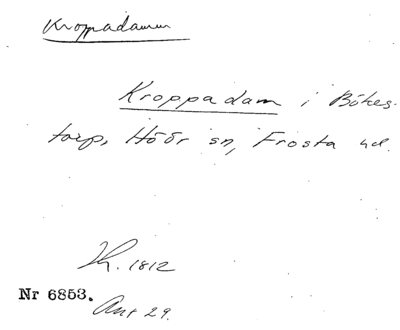 Kroppadamm
Kroppadam i Bökes-
torp, Höör sn, Frosta hd.
Th. 1812
Nr 6853.
Ant 29.